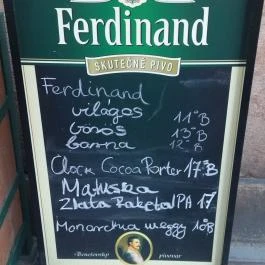 Ferdinand
SKUTEČNÉ PIVO
Ferdinand
világos 11°B
vörös 13°B
barna 12°B
Clock Cocoa Porter 17°B
Matuška
Zlatá Raketa IPA 17
Monarchia meggy 10B
Benešovský pivovar